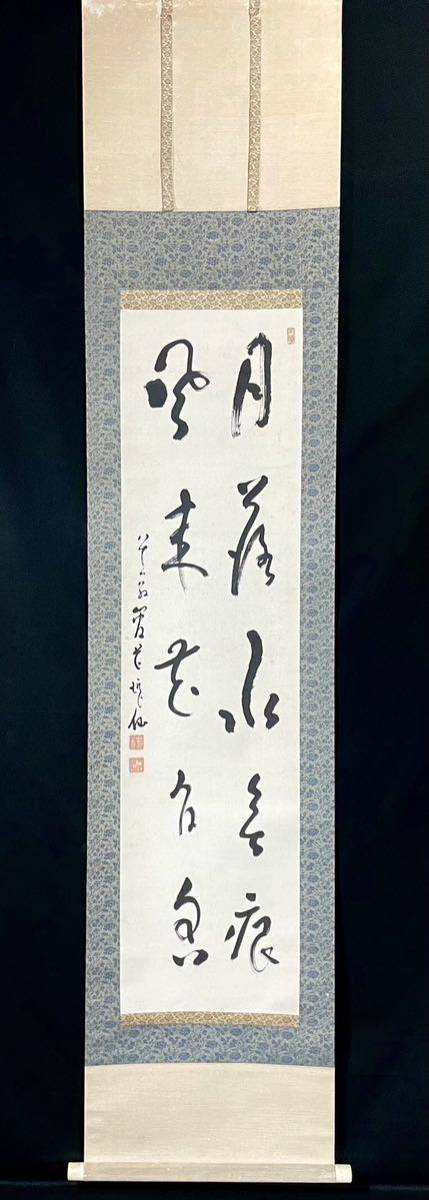 月落水無痕
風来花自香